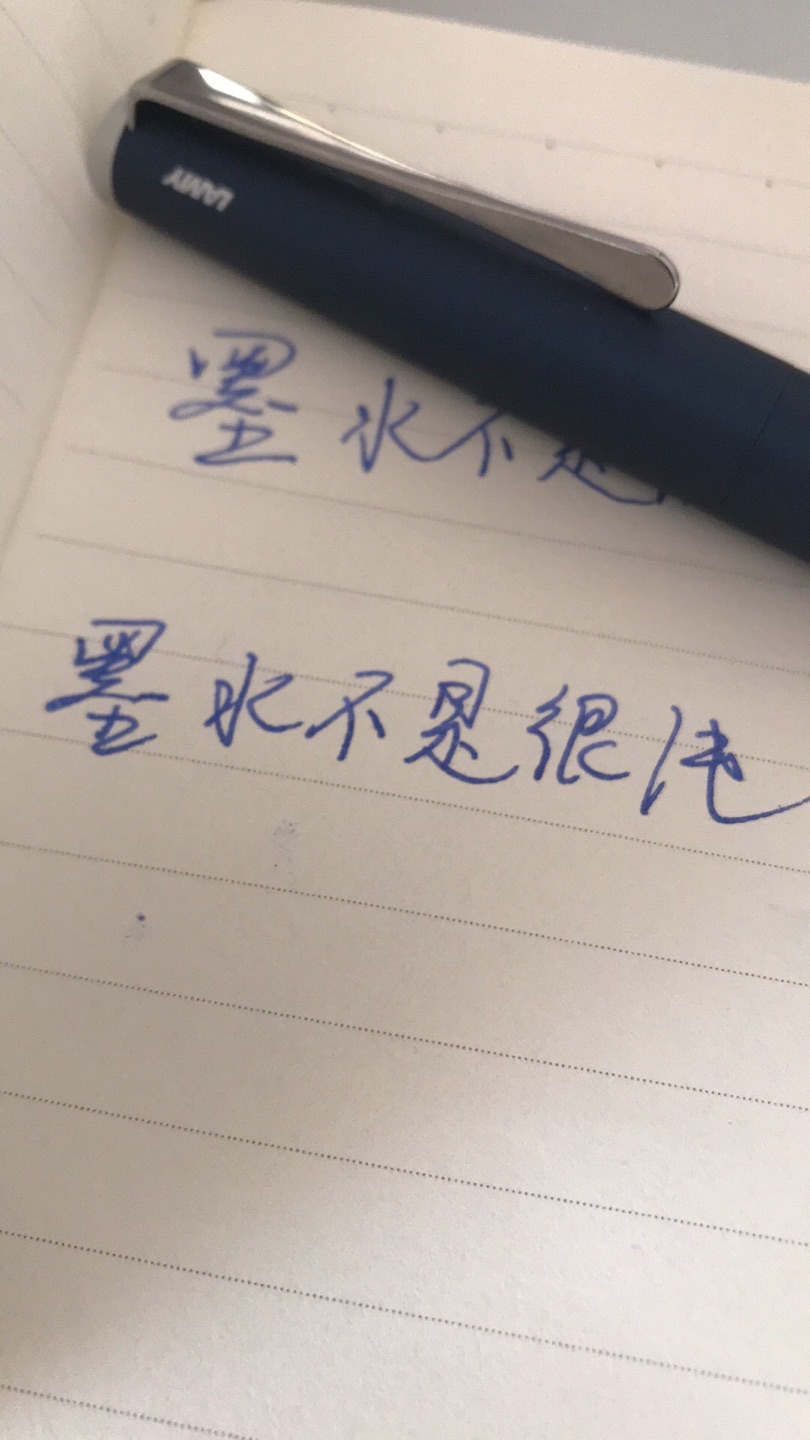 LAMY
墨水不是
墨水不是很